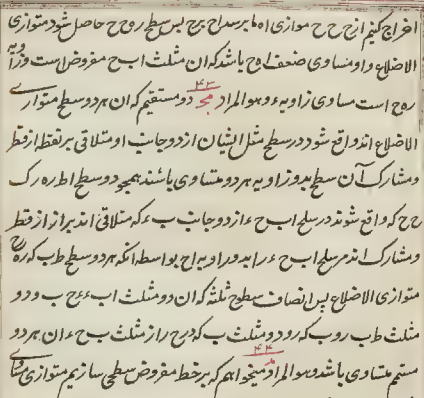 اخراج کنیم از ح ح ح موازی اه تا بر سد اح برج پس سطح ر ه ح حاصل شود متوازی
الاضلاع و او مساوی ضعف اه ح باشد که ان مثلث اب ح مفروض است و زاویه
ره ح است مساوی زاویه ء و هو المراد ۴۳ مج دو مستقیم که ان هر دو سطح متوازی
الاضلاع اند واقع شود در سطح مثل ایشان از دو جانب او متلاقی بر نقطه از قطر
و مشارک آن سطح بدو زاویه هر دو متساوی باشند همچو دو سطح اط ره رک
ح ح که واقع شوند در سطح اب ح ء از دو جانب ب ء که متلاقی اند بر از از قطر
و مشارک اند مر سطح اب ح ء را بدو زاویه اح بواسطه انکه هر دو سطح طب که ره ح
متوازی الاضلاع پس انصاف سطوح ثلثه که ان دو مثلث اب ء ء ح ب و دو
مثلث طب ر و ب که ر و دو مثلث ب که درح ر از مثلث ب ح ء ان هر دو
متمم متساوی باشد و هو المراد ۴۴ مد میخواهم که بر خط مفروض سطحی سازیم متوازی مساوی